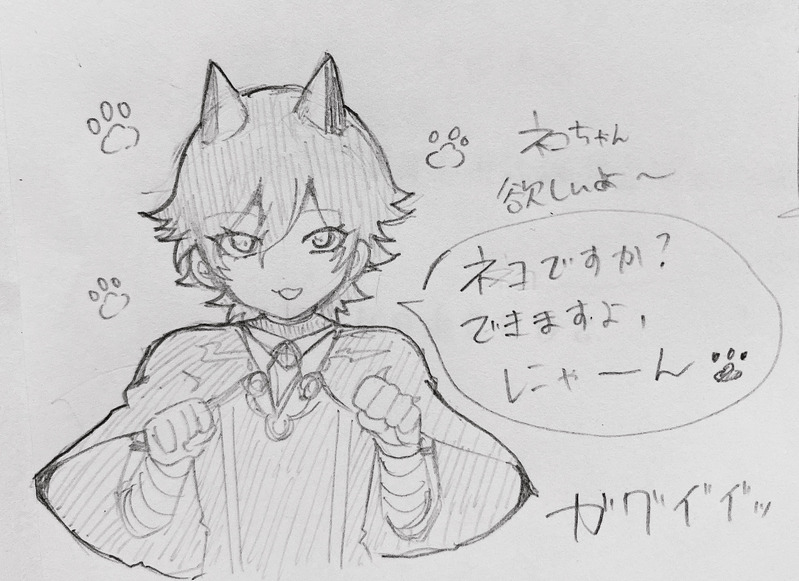 ネコちゃん
欲しいよ～
ネコですか?
できますよ、
にゃーん
ガタイイッ